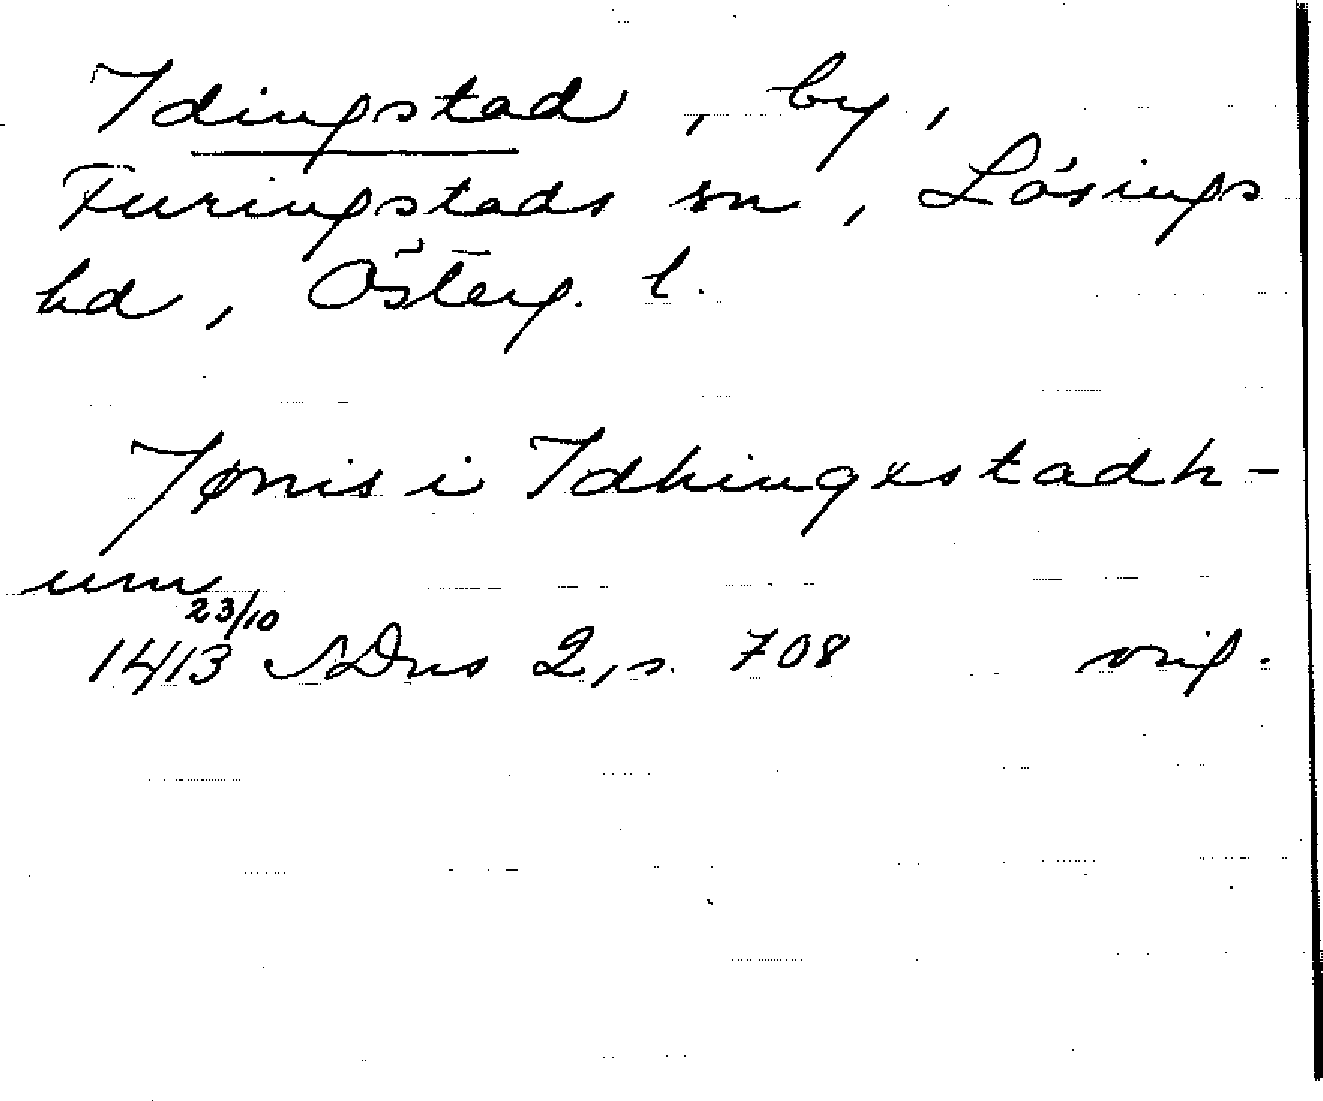 Idingstad, by,
Furingstads sn, Lösings
hd, Österg. l.
Jønis i Idhingxstadh-
um
23/10
1413 SDns 2, s. 708 orig.